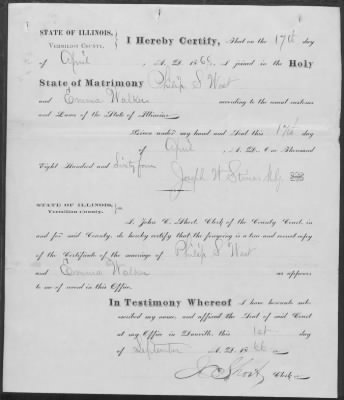 STATE OF ILLINOIS,
VERMILION COUNTY.
I Hereby Certify, That on the 17th day
of April, A. D. 186, I joined in the Holy
State of Matrimony Philip S West
and Emma Walker according to the usual customs
and Laws of the State of Illinois.
Given under my hand and Seal this 17th day
of April A. D. One Thousand
Eight Hundred and Sixty four
Joseph W
STATE OF ILLINOIS,
Vermilion County.
I, John C. Short, Clerk of the County Court, in
and for said County, do hereby certify that the foregoing is a true and correct copy
of the Certificate of the marriage of Philip S West
and Emma Walker as appears
to me of record in this Office.
In Testimony Whereof I have hereunto sub-
scribed my name, and affixed the Seal of said Court
at my Office in Danville, this 1st day
of September A. D. 1866
J C Short, Clerk